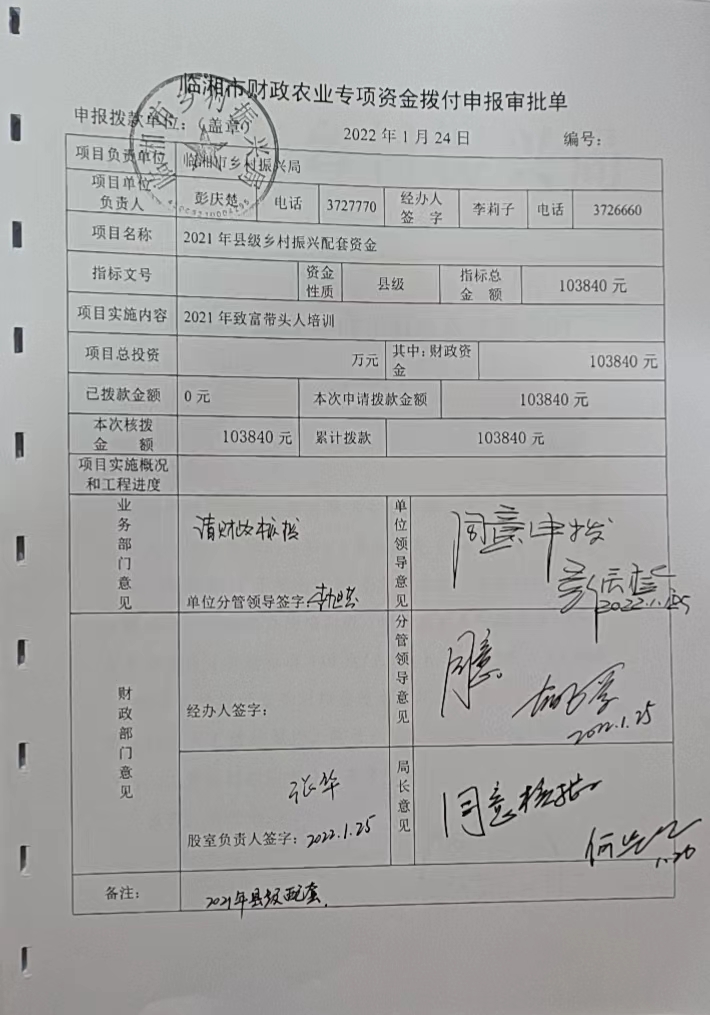 临湘市财政农业专项资金拨付申报审批单
申报拨款单位：（盖章） 2022年1月24日 编号：
项目负责单位 临湘市乡村振兴局
项目单位负责人 彭庆楚 电话 3727770 经办人签字 李莉子 电话 3726660
项目名称 2021年县级乡村振兴配套资金
指标文号 资金性质 县级 指标总金额 103840元
项目实施内容 2021年致富带头人培训
项目总投资 万元 其中：财政资金 103840元
已拨款金额 0元 本次申请拨款金额 103840元
本次核拨金额 103840元 累计拨款 103840元
项目实施概况和工程进度
业务部门意见 请财政核拨 单位分管领导签字： 单位领导意见 同意申拨 彭庆楚 2022.1.25
财政部门意见 经办人签字： 分管领导意见 同意 2022.1.25
张华 股室负责人签字：2022.1.25 局长意见 同意核拨 1.26
备注： 2021年县级配套.